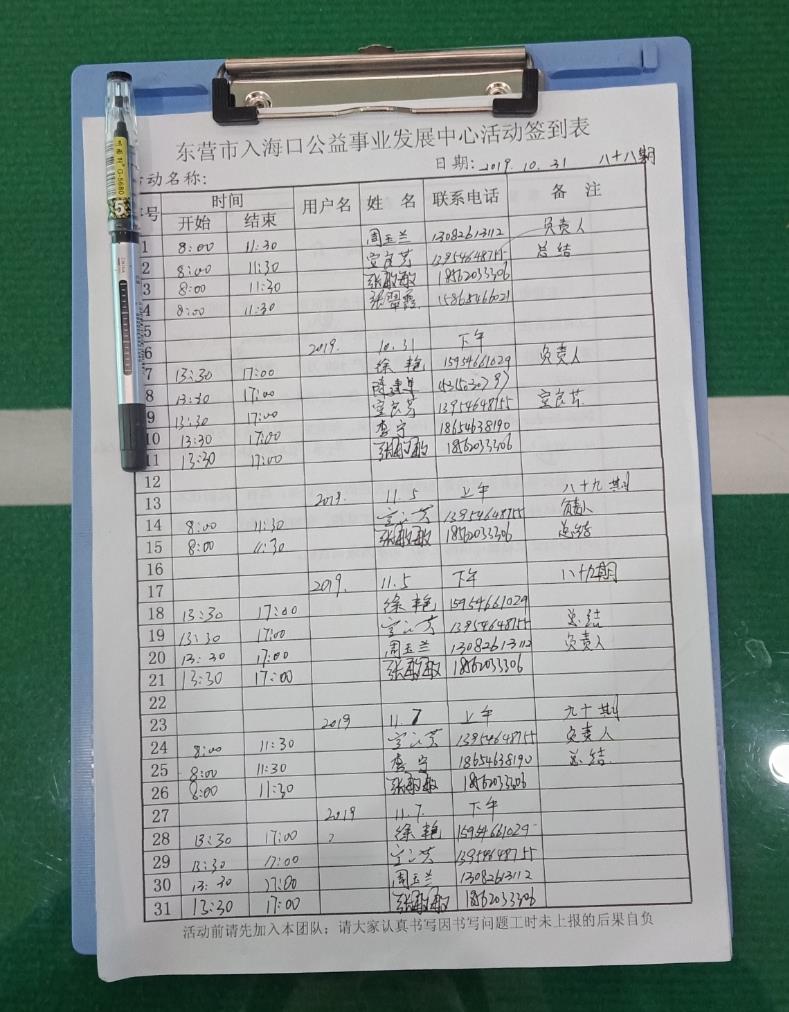 东营市入海口公益事业发展中心活动签到表
日期: 2019. 10. 31 八十八期
动名称:
号 时间 用户名 姓 名 联系电话 备 注
开始 结束
1 8:00 11:30 周玉兰 13082613112 负责人
2 8:00 11:30 13954648755 总结
3 8:00 11:30 张敏敏 18562033306
4 8:00 11:30 张翠霞 15865466021
5
6 2019. 10.31 下午
7 13:30 17:00 徐艳 15954661029 负责人
8 13:30 17:00
9 13:30 17:00 13954648755
10 13:30 17:00 李宁 18654638190
11 13:30 17:00 张敏敏 18562033306
12
13 2019. 11.5 上午 八十九期
14 8:00 11:30 13954648755 负责人
15 8:00 11:30 张敏敏 18562033306 总结
16
17 2019. 11.5 下午 八十九期
18 13:30 17:00 徐艳 15954661029
19 13:30 17:00 13954648755 总结
20 13:30 17:00 周玉兰 13082613112 负责人
21 13:30 17:00 张敏敏 18562033306
22
23 2019 11.7 上午 九十期
24 8:00 11:30 13954648755 负责人
25 8:00 11:30 李宁 18654638190 总结
26 8:00 11:30 张敏敏 18562033306
27 2019 11.7. 下午
28 13:30 17:00 徐艳 15954661029
29 13:30 17:00 13954648755
30 13:30 17:00 周玉兰 13082613112
31 13:30 17:00 张敏敏 18562033306
活动前请先加入本团队；请大家认真书写因书写问题工时未上报的后果自负
G-5680